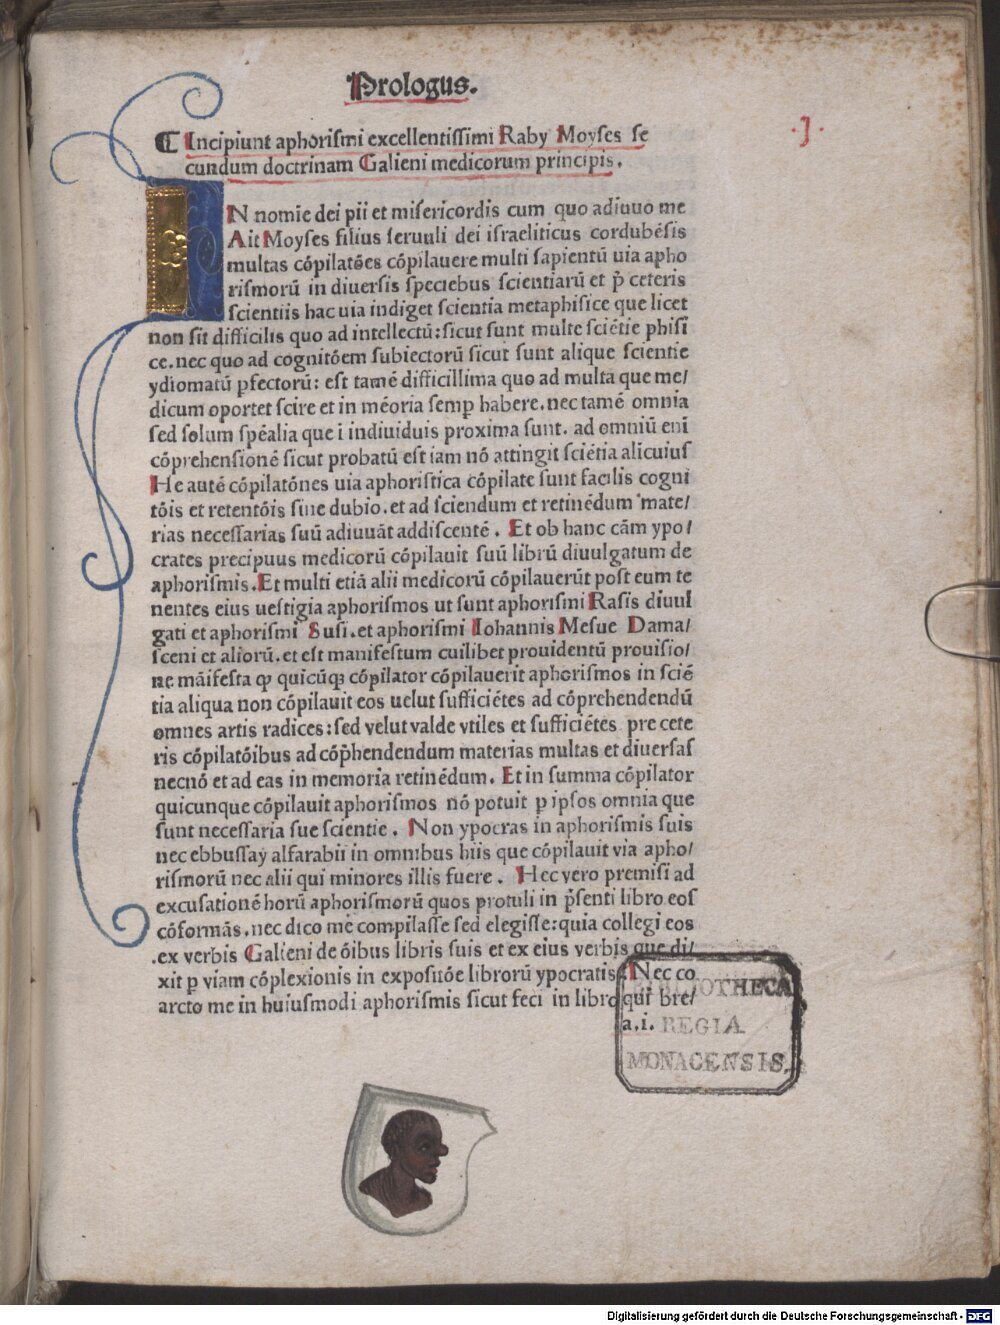 Prologus.
.1.
¶ Incipiunt aphorismi excellentissimi Raby Moyses se
cundum doctrinam Galieni medicorum principis.
IN nomie dei pii et misericordis cum quo adiuuo me
Ait Moyses filius seruuli dei israeliticus cordubēsis
multas cōpilatōes cōpilauere multi sapientū uia apho
rismorū in diuersis speciebus scientiarū et p̄ ceteris
scientiis hac uia indiget scientia metaphisice que licet
non sit difficilis quo ad intellectū: sicut sunt multe sciētie phisi
ce. nec quo ad cognitōem subiectorū sicut sunt alique scientie
ydiomatū ꝑfectorū: est tamē difficillima quo ad multa que me/
dicum oportet scire et in mēoria semꝑ habere. nec tamē omnia
sed solum spēalia que ī indiuiduis proxima sunt. ad omniū eni
cōprehensionē sicut probatū est iam nō attingit sciētia alicuius
He autē cōpilatōnes uia aphoristica cōpilate sunt facilis cogni
tōis et retentōis sine dubio. et ad sciendum et retinēdum mate/
rias necessarias suū adiuuāt addiscentē. Et ob hanc cām ypo/
crates precipuus medicorū cōpilauit suū librū diuulgatum de
aphorismis. Et multi etiā alii medicorū cōpilauerūt post eum te
nentes eius uestigia aphorismos ut sunt aphorismi Rasis diuul
gati et aphorismi Susi. et aphorismi Iohannis Mesue Dama/
sceni et aliorū. et est manifestum cuilibet prouidentū prouisio/
ne māifesta ꝙ quicūqꝫ cōpilator cōpilauerit aphorismos in sciē
tia aliqua non cōpilauit eos uelut sufficiētes ad cōprehendendū
omnes artis radices: sed velut valde vtiles et sufficiētes pre cete
ris cōpilatōibus ad cōp̄hendendum materias multas et diuersas
necnō et ad eas in memoria retinēdum. Et in summa cōpilator
quicunque cōpilauit aphorismos nō potuit ꝑ ipsos omnia que
sunt necessaria sue scientie. Non ypocras in aphorismis suis
nec ebbussay alfarabii in omnibus hiis que cōpilauit via apho/
rismorū nec alii qui minores illis fuere. Hec vero premisi ad
excusationē horū aphorismorū quos protuli in p̄senti libro eos
cōformās. nec dico me compilasse sed elegisse: quia collegi eos
.ex verbis Galieni de ōibus libris suis et ex eius verbis que di/
xit ꝑ viam cōplexionis in expositōe librorū ypocratis. Nec co
arcto me in huiusmodi aphorismis sicut feci in libro qui bre/
a.i.
BIBLIOTHECA
REGIA
MONACENSIS.
Digitalisierung gefördert durch die Deutsche Forschungsgemeinschaft - DFG